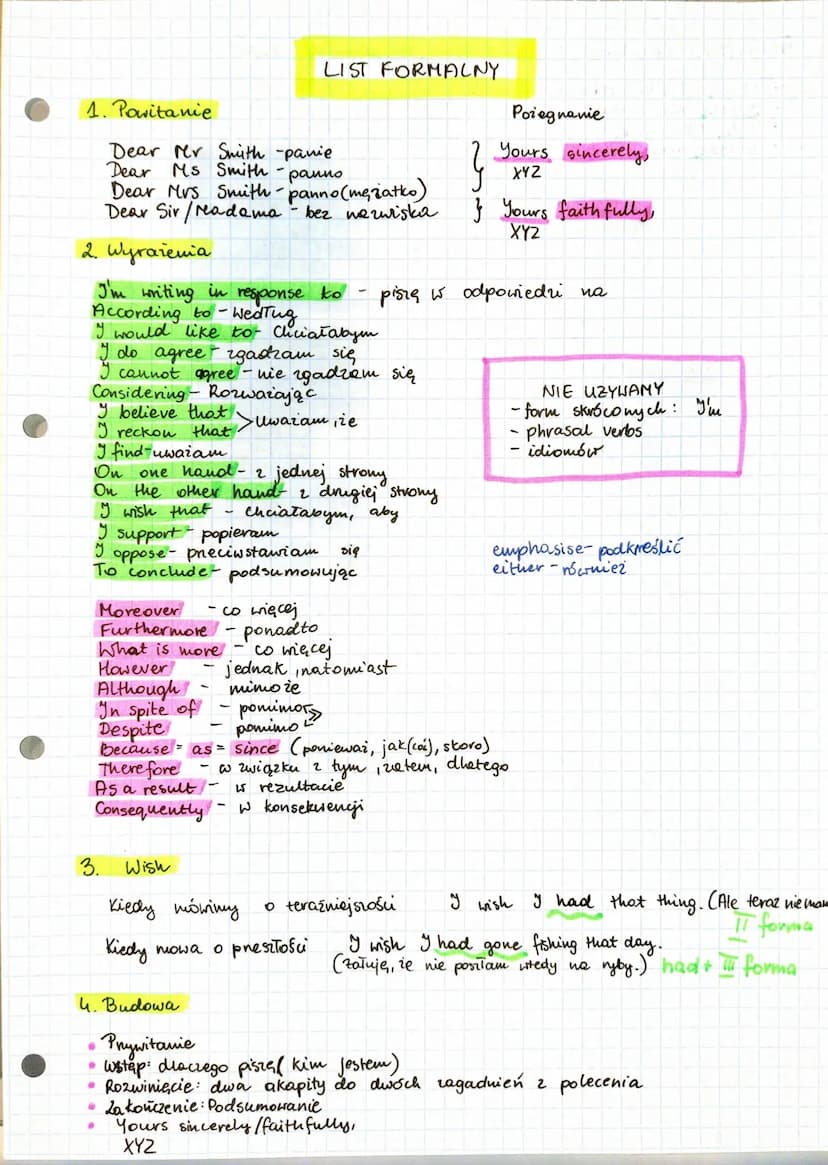 LIST FORMALNY
1. Powitanie
Pożegnanie
Dear Mr Smith - panie
Dear Ms Smith - panno
Dear Mrs Smith - panno (mężatko)
Dear Sir/Madama - bez nazwiska
Yours sincerely,
XYZ
Yours faithfully,
XYZ
2. Wyrażenia
I'm writing in response to - piszę w odpowiedzi na
According to - według
I would like to - chciałabym
I do agree - zgadzam się
I cannot agree - nie zgadzam się
Considering - Rozważając
I believe that
I reckon that
> uważam, że
I find - uważam
On one hand - z jednej strony
On the other hand - z drugiej strony
I wish that - chciałabym, aby
I support - popieram
I oppose - przeciwstawiam się
To conclude - podsumowując
NIE UŻYWAMY
- form skróconych: I'm
- phrasal verbs
- idiomów
emphasise - podkreślić
either - również
Moreover - co więcej
Furthermore - ponadto
What is more - co więcej
However - jednak, natomiast
Although - mimo że
In spite of - pomimo
Despite - pomimo
Because = as = since (ponieważ, jak(coś), skoro)
Therefore - w związku z tym, zatem, dlatego
As a result - w rezultacie
Consequently - w konsekwencji
3. Wish
Kiedy mówimy o teraźniejszości I wish I had that thing. (Ale teraz nie mam
II forma
Kiedy mowa o przeszłości I wish I had gone fishing that day.
(żałuję, że nie poszłam wtedy na ryby.) had + III forma
4. Budowa
• Przywitanie
• Wstęp: dlaczego piszę (kim jestem)
• Rozwinięcie: dwa akapity do dwóch zagadnień z polecenia
• Zakończenie: Podsumowanie
• Yours sincerely/faithfully,
XYZ